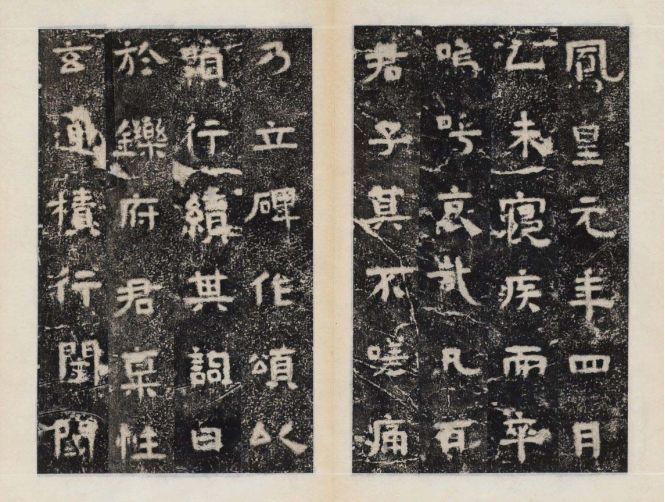 鳳皇元年四月
乙未寑疾而卒
嗚呼哀哉凡百
君子其不嗟痛
乃立碑作頌以
顯行績其詞曰
於鑠府君稟性
玄通積行閨門